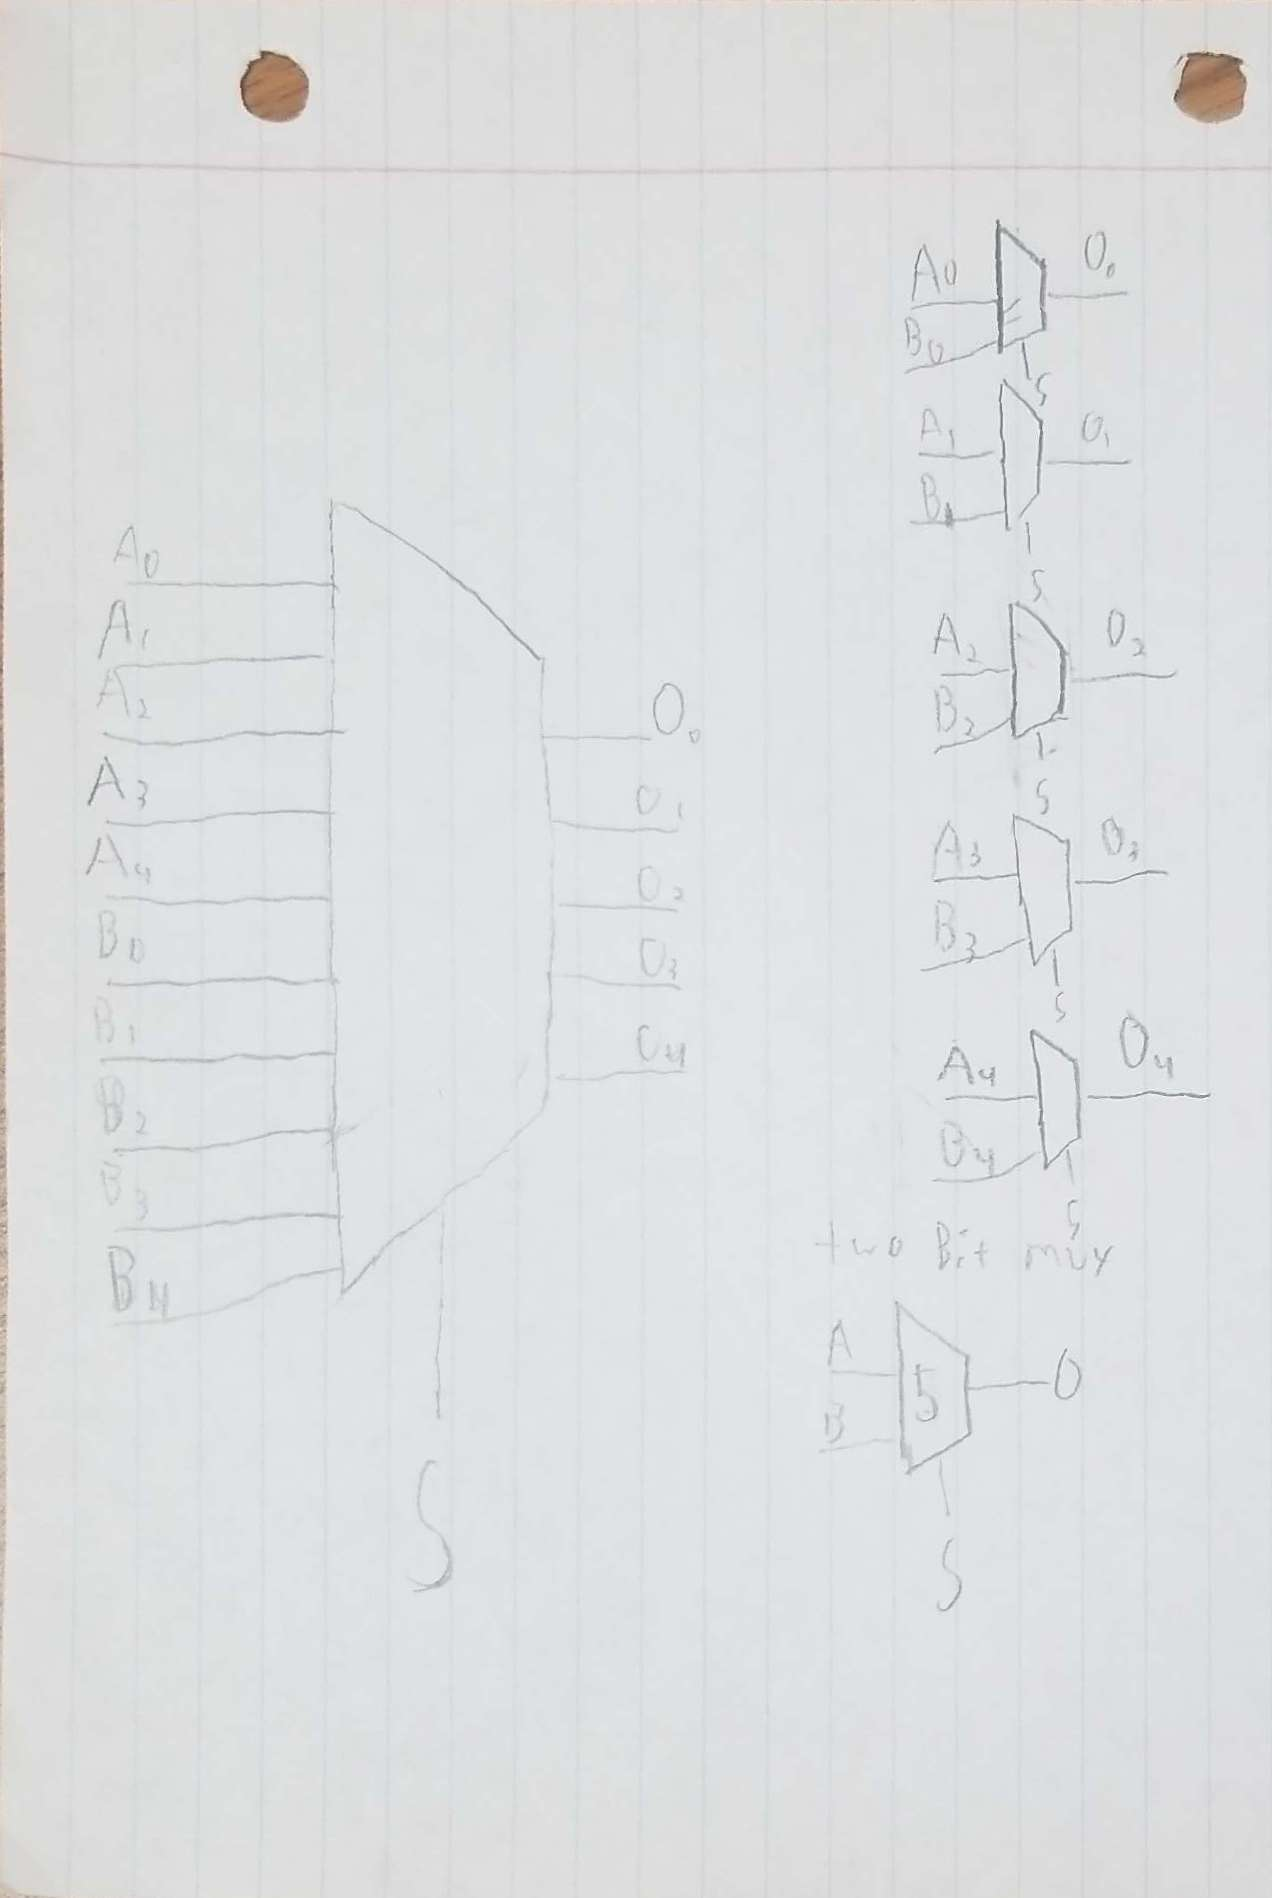 A0
A1
A2
A3
A4
B0
B1
B2
B3
B4
O0
O1
O2
O3
O4
S
A0
B0
O0
S
A1
B1
O1
S
A2
B2
O2
S
A3
B3
O3
S
A4
B4
O4
S
two Bit mux
A
B
5
O
S